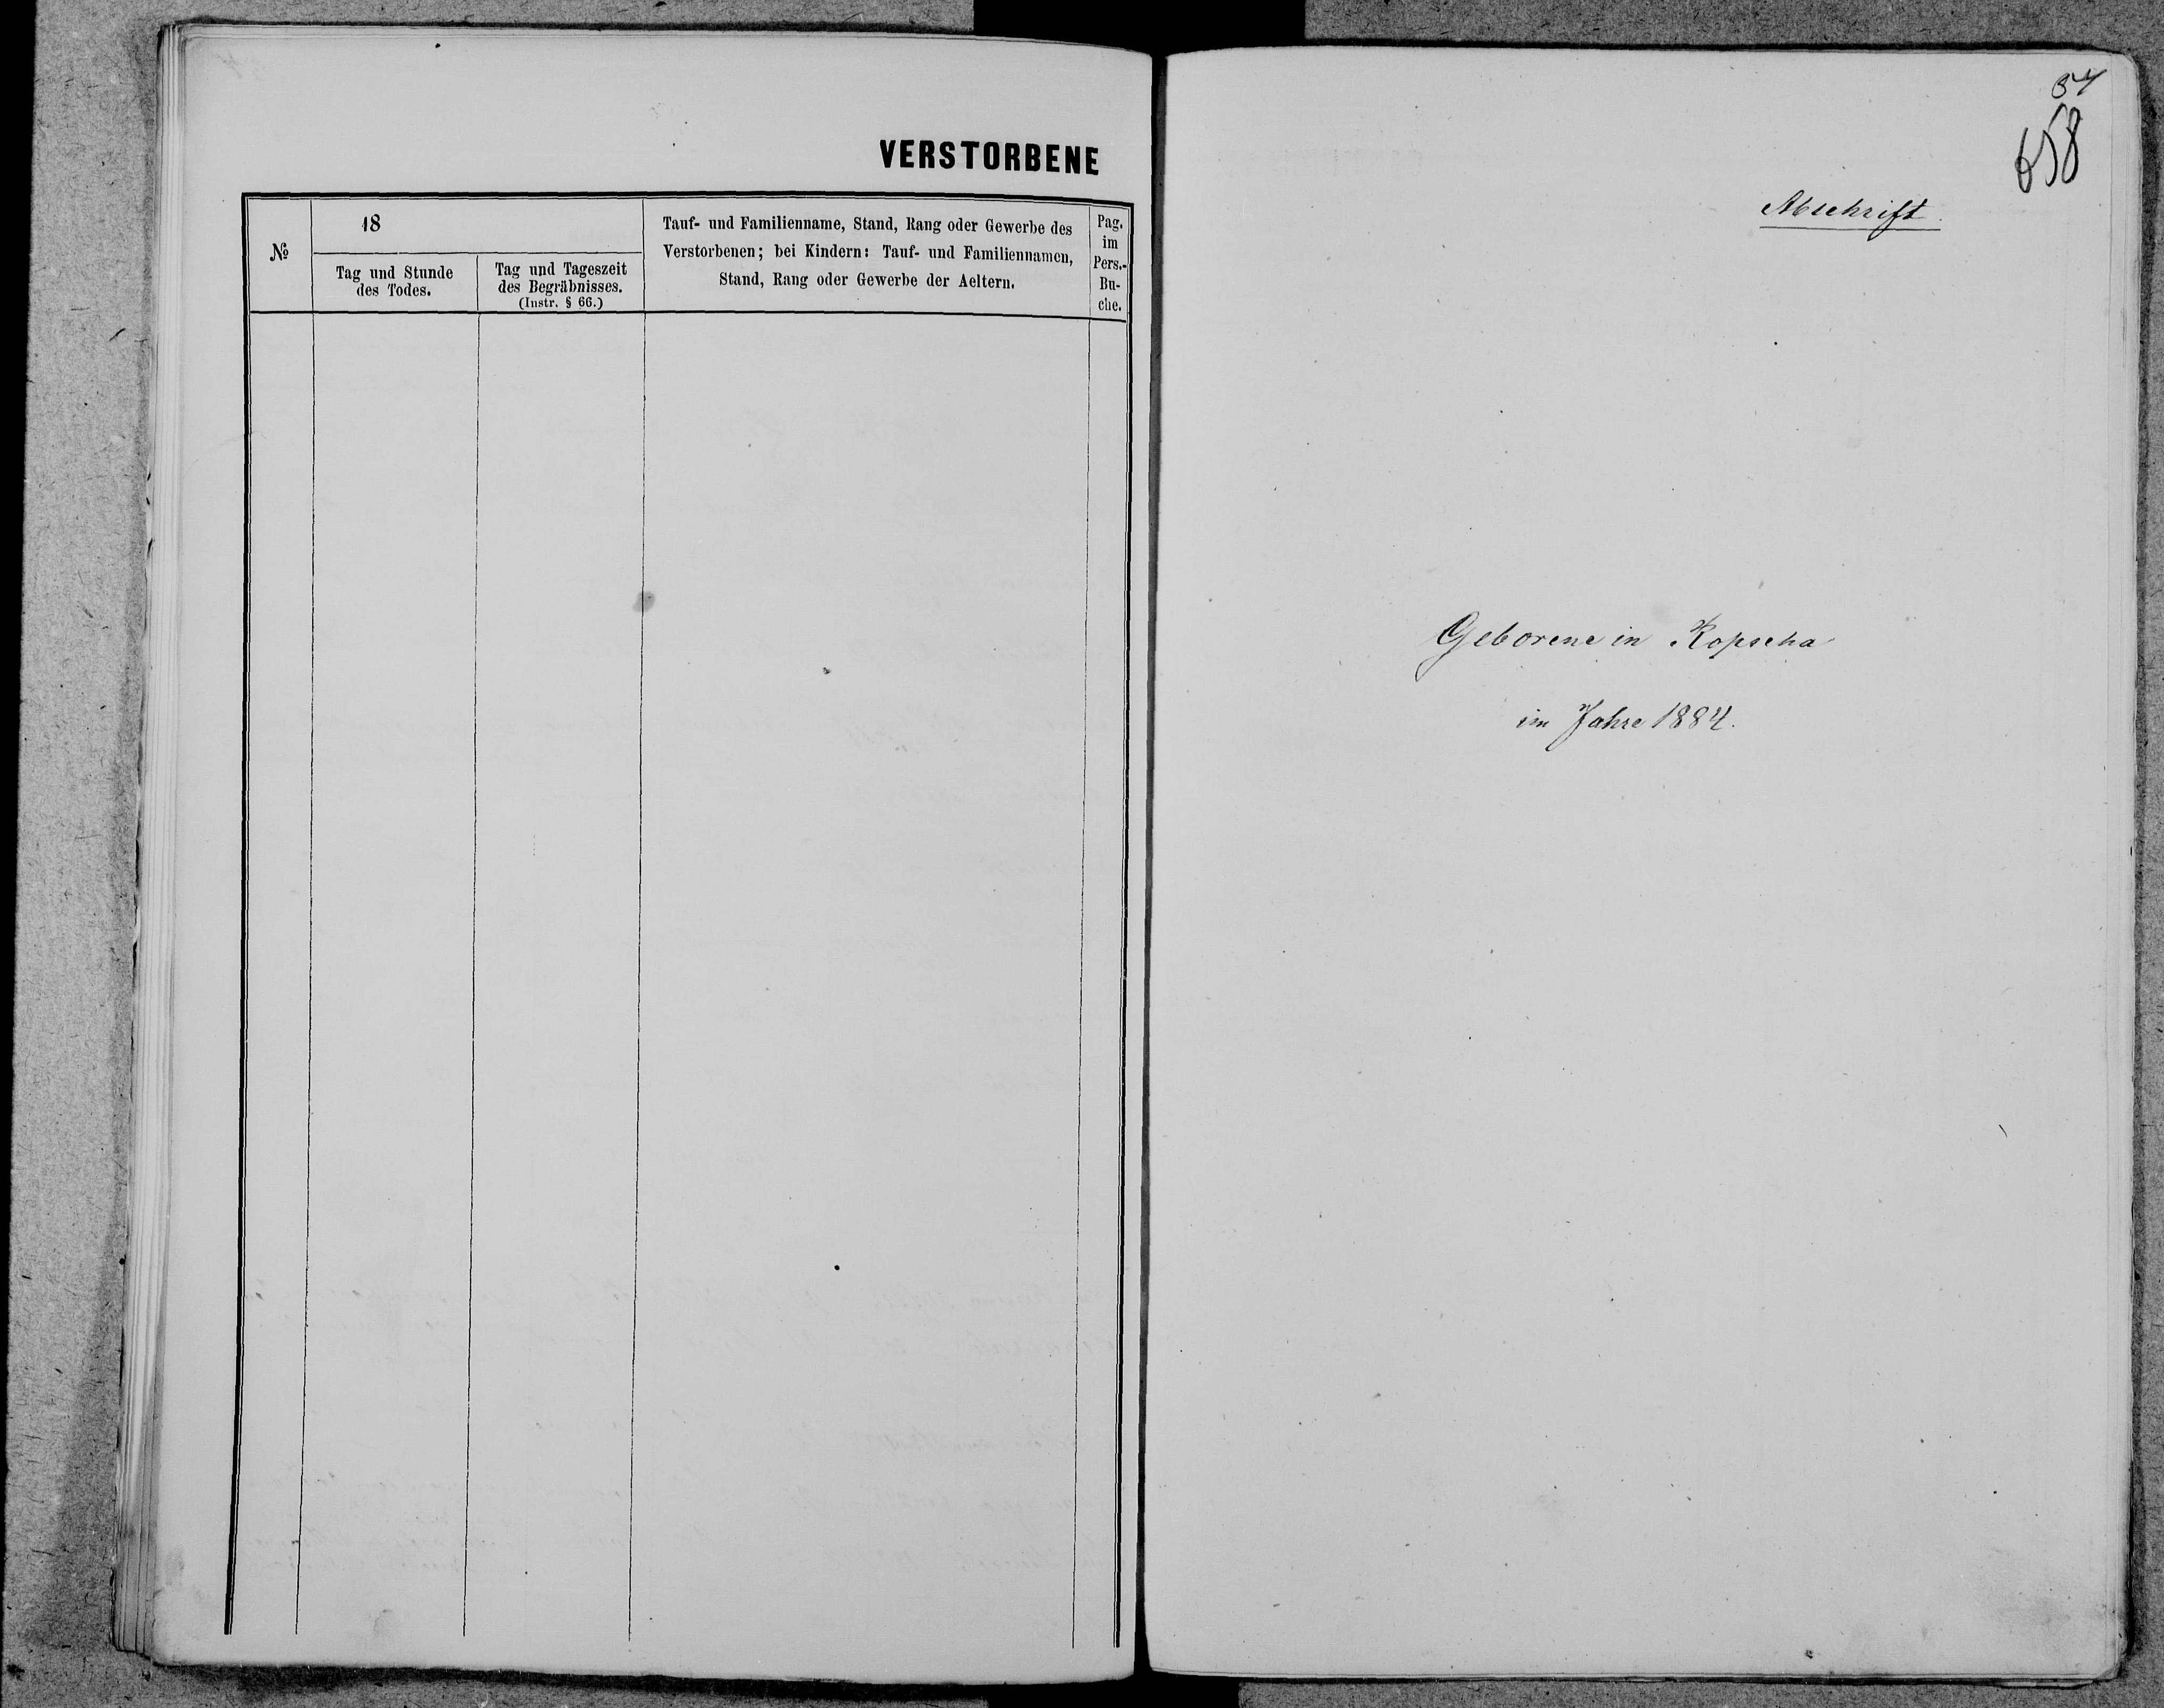 VERSTORBENE
№
18
Tag und Stunde
des Todes.
Tag und Tageszeit
des Begräbnisses.
(Instr. § 66.)
Tauf- und Familienname, Stand, Rang oder Gewerbe des
Verstorbenen; bei Kindern: Tauf- und Familiennamen,
Stand, Rang oder Gewerbe der Aeltern.
Pag.
im
Pers.-
Bu-
che.
658
Abschrift.
Geborene in Kopscha
im Jahre 1884.